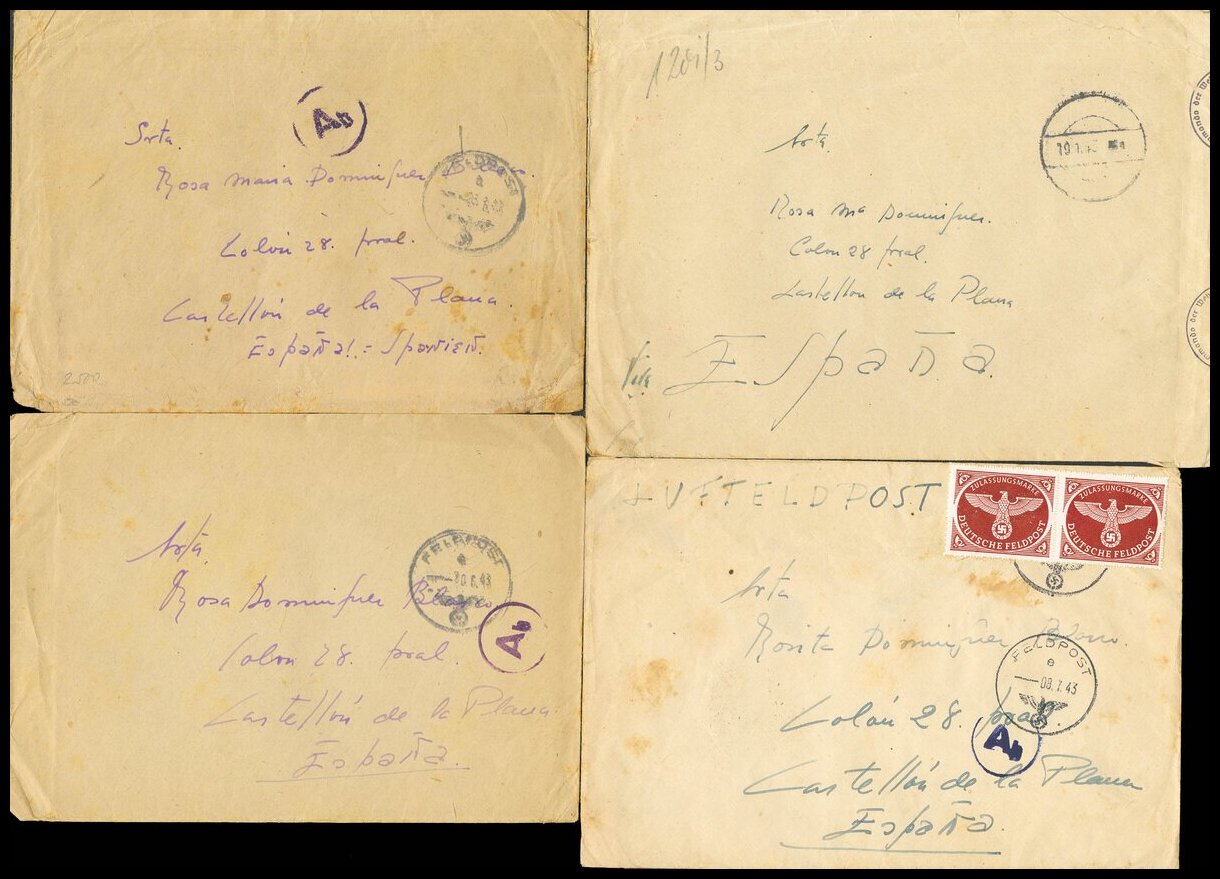 Ab
Srta.
FELDPOST
a
43
Rosa Maria Dominguez
Colón 28. pral.
Castellón de la Plana.
España! = Spanien.
2500
1201/3
Srta.
19.1.43
Rosa Mª Dominguez.
Colon 28 pral.
Castellon de la Plana
España.
Srta
FELDPOST
e
20.6.43
Rosa Dominguez Blasco
Ab
Colon 28. pral.
Castellón de la Plana.
España.
LUFTFELDPOST
ZULASSUNGSMARKE
DEUTSCHE FELDPOST
ZULASSUNGSMARKE
DEUTSCHE FELDPOST
Srta
Rosita Dominguez Blasco.
FELDPOST
e
08.7.43
Colón 28. pral.
Ab
Castellón de la Plana
España.